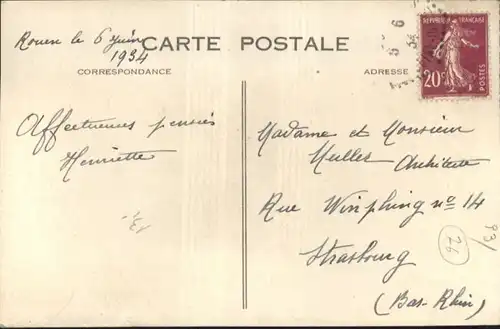 Rouen le 6 juin
1934
CARTE POSTALE
CORRESPONDANCE
ADRESSE
REPUBLIQUE FRANÇAISE
20c
POSTES
Affectueuses pensées
Henriette
13,-
Madame et Monsieur
Muller Architecte
Rue Wimpheling no 14
Strasbourg
(Bas-Rhin)
93/
26